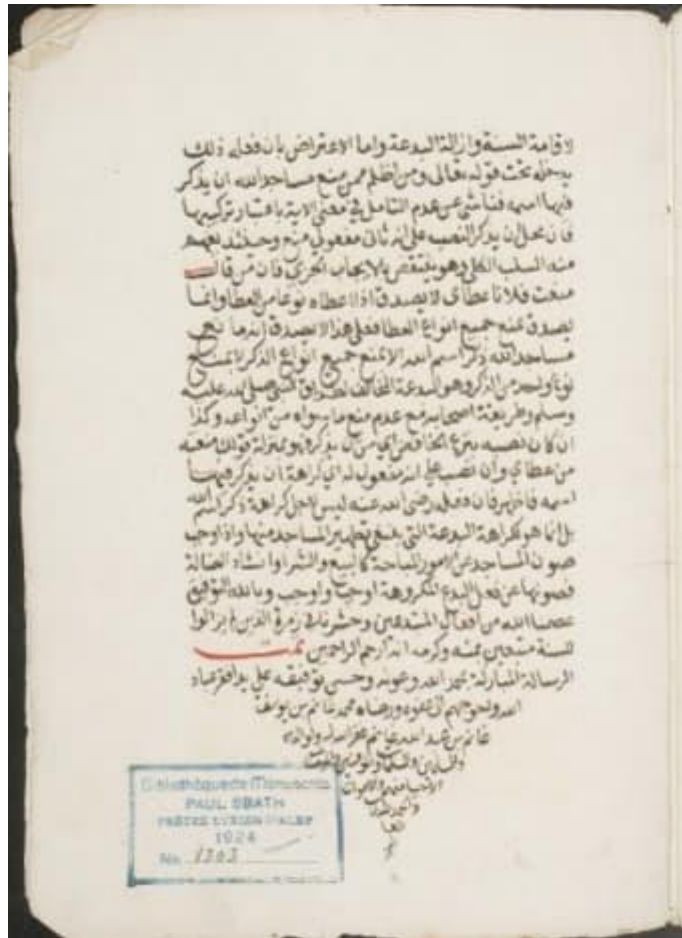 لاقامة السنة وازالة البدعة واما الاعتراض بان فعله ذلك
يدخله تحت قوله تعالى ومن اظلم ممن منع مساجد الله ان يذكر
فيها اسمه فناشئ عن عدم التامل في معنى الاية باعتبار تركيبها
فان محل ان يذكر النصب على انه ثاني مفعولي منع وحينئذ يفهم
منه السلب الكلي وهو ينتقض بالايجاب الجزئي فان من قال
منعت فلانا عطاي لا يصدق اذا اعطاه نوعا من العطا وانما
يصدق بمنع جميع انواع العطا فعلى هذا لا يصدق انه مانع
مساجد الله ذكر اسم الله الا بمنع جميع انواع الذكر لا بمنع
نوع واحد من الذكر وهو البدعة المخالف لطريق النبي صلى الله عليه
وسلم وطريقة اصحابه مع عدم منع ما سواه من انواعه وكذا
ان كان نصبه بنزع الخافض اي من ان يذكر فهو بمنزلة قولك منعته
من عطاي وان نصب على انه مفعول له اي كراهة ان يذكر فيها
اسمه فاظهر فان فعله رضى الله عنه ليس لاجل كراهة ذكر اسم الله
بل انما هو لكراهة البدعة التي ينبغي تطهير المساجد منها واذا وجب
صون المساجد عن الامور المباحة كالبيع والشرا وانشاد الضالة
فصونها عن فعل البدع المكروهة اوجب واوجب وبالله التوفيق
عصمنا الله من افعال المبتدعين وحشرنا في زمرة الذين لم يزالوا
للسنة متبعين بمنه وكرمه انه ارحم الراحمين تمت
الرسالة المباركة بحمد الله وعونه وحسن توفيقه على يد افقر عباد
الله واحوجهم الى عفوه ورضاه محمد غانم بن يوسف
غانم بن عبد الله غانم غفر الله له ولوالديه
الاحيا منهم والاموات
Bibliothèque de Manuscrits
PAUL SBATH
PRÊTRE SYRIEN D'ALEP
1924
No. 1303